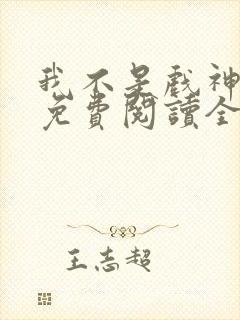 我不是戲神
免費閱讀全
王志超